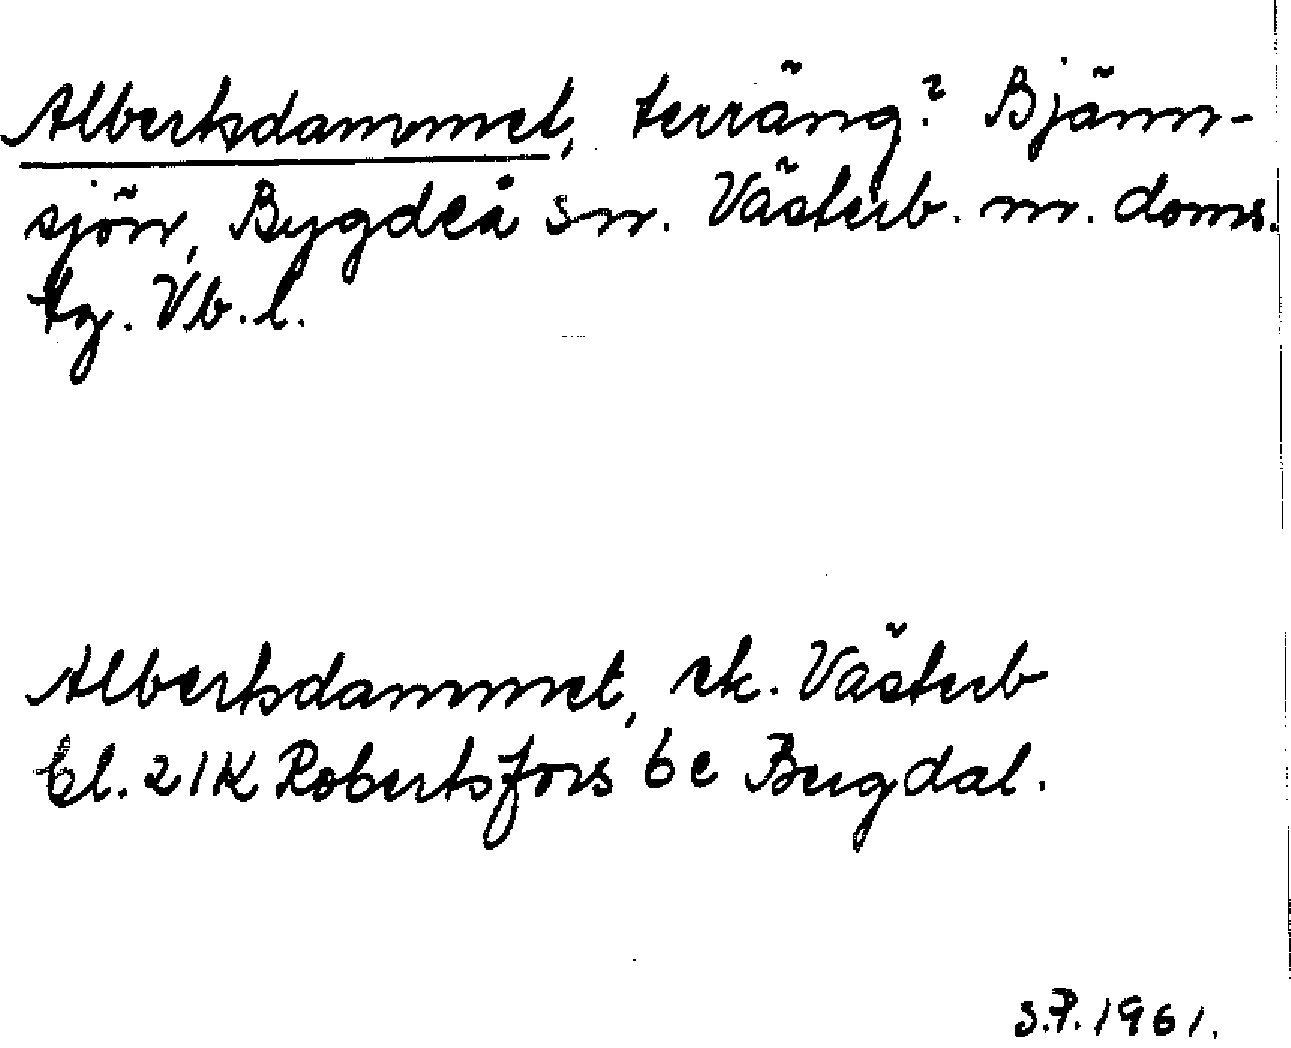 Albertsdammet, terräng? Bjänn-
sjön, Bygdeå sn. Västerb. m. doms.
tg. Vb. l.
Albertsdammet, ek. Västerb
bl. 21K Robertsfors 6e Bergdal.
S.P. 1961.